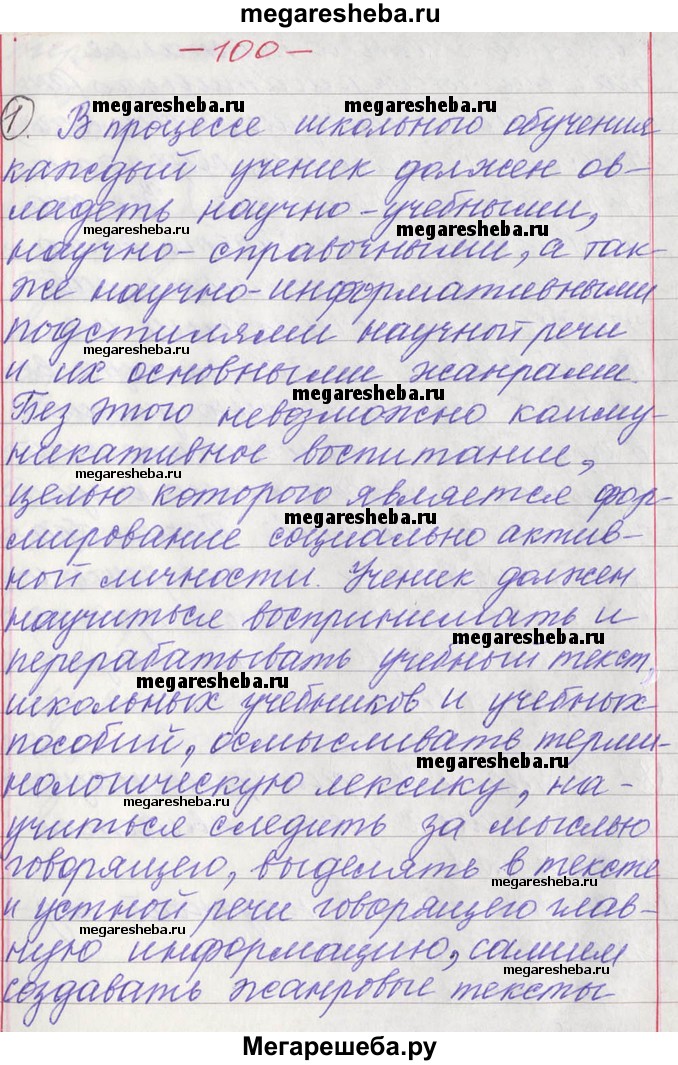 megaresheba.ru
-100-
megaresheba.ru megaresheba.ru
1. В процессе школьного обучения
каждый ученик должен ов-
megaresheba.ru
ладеть научно-учебными,
megaresheba.ru
научно-справочными, а так-
megaresheba.ru
же научно-информативными
подстилями научной речи
megaresheba.ru
и их основными жанрами.
megaresheba.ru
Без этого невозможно комму-
никативное воспитание,
megaresheba.ru
целью которого является фор-
megaresheba.ru
мирование социально актив-
ной личности. Ученик должен
научиться воспринимать и
megaresheba.ru
перерабатывать учебный текст,
megaresheba.ru
школьных учебников и учебных
пособий, осмысливать терми-
megaresheba.ru
нологическую лексику, на-
megaresheba.ru
учиться следить за мыслью
говорящего, выделять в тексте
megaresheba.ru
и устной речи говорящего глав-
megaresheba.ru
ную информацию, самим
megaresheba.ru
создавать жанровые тексты
Мегарешеба.ру